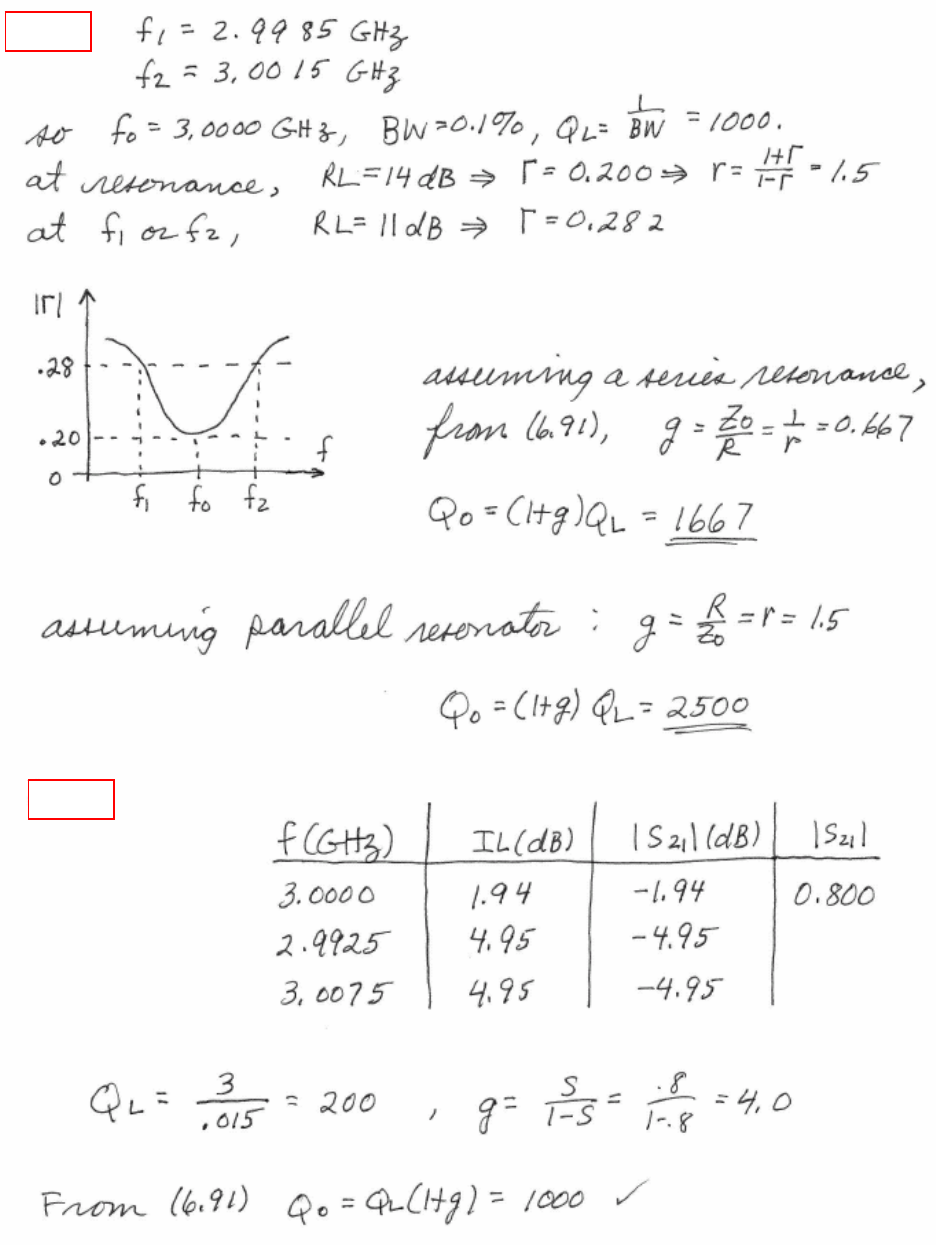 f1 = 2.9985 GHz
f2 = 3.0015 GHz
so f0 = 3.0000 GHz, BW = 0.1%, QL = 1/BW = 1000.
at resonance, RL = 14 dB ⇒ Γ = 0.200 ⇒ r = (1+Γ)/(1-Γ) = 1.5
at f1 or f2, RL = 11 dB ⇒ Γ = 0.282
|Γ|
.28
.20
0
f1 f0 f2
f
assuming a series resonance,
from (6.91), g = Z0/R = 1/r = 0.667
Q0 = (1+g)QL = 1667
assuming parallel resonator : g = R/Z0 = r = 1.5
Q0 = (1+g) QL = 2500
f(GHz) IL(dB) |S21|(dB) |S21|
3.0000 1.94 -1.94 0.800
2.9925 4.95 -4.95
3.0075 4.95 -4.95
QL = 3/.015 = 200 , g = S/(1-S) = .8/(1-.8) = 4.0
From (6.91) Q0 = QL(1+g) = 1000 ✓